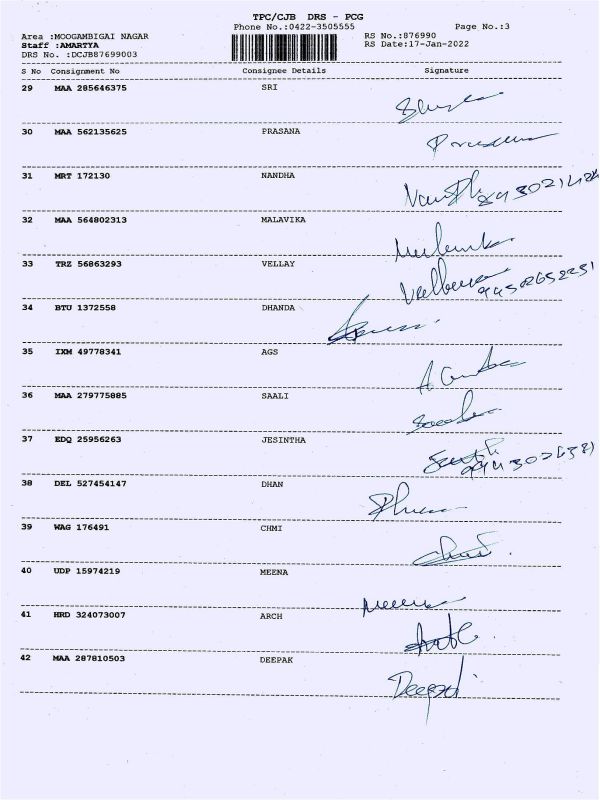 TPC/CJB DRS - PCG
Phone No.:0422-3505555 Page No.:3
Area :MOOGAMBIGAI NAGAR RS No.:876990
Staff :AMARTYA RS Date:17-Jan-2022
DRS No. :DCJB87699003
S No Consignment No Consignee Details Signature
29 MAA 285646375 SRI
30 MAA 562135625 PRASANA
31 MRT 172130 NANDHA
32 MAA 564802313 MALAVIKA
33 TRZ 56863293 VELLAY
34 BTU 1372558 DHANDA
35 IXM 49778341 AGS
36 MAA 279775885 SAALI
37 EDQ 25956263 JESINTHA
38 DEL 527454147 DHAN
39 WAG 176491 CHMI
40 UDP 15974219 MEENA
41 HRD 324073007 ARCH
42 MAA 287810503 DEEPAK